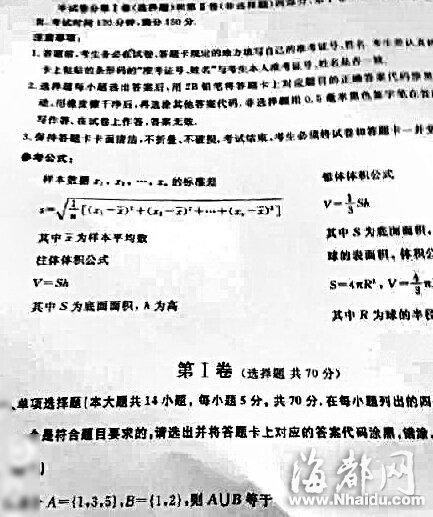 本试卷分第Ⅰ卷(选择题)和第Ⅱ卷(非选择题)两部分,
页.考试时间120分钟,满分150分.
注意事项:
1.答题前,考生务必在试卷、答题卡规定的地方填写自己的准考证号、姓名.考生要认真
卡上粘贴的条形码的"准考证号、姓名"与考生本人准考证号、姓名是否一致.
2.选择题每小题选出答案后,用2B铅笔将答题卡上对应题目的正确答案代码涂黑
动,用橡皮擦干净后,再选涂其他答案代码.非选择题用0.5毫米黑色签字笔在答
写作答,在试卷上作答,答案无效.
3.保持答题卡卡面清洁,不折叠、不破损.考试结束,考生必须将试卷和答题卡一并交
参考公式:
样本数据x₁,x₂,…,xₙ的标准差
s=√(1/n[(x₁-x̄)²+(x₂-x̄)²+…+(xₙ-x̄)²])
其中x̄为样本平均数
柱体体积公式
V=Sh
其中S为底面面积,h为高
锥体体积公式
V=1/3Sh
其中S为底面面积,
球的表面积、体积公
S=4πR²,V=4/3π
其中R为球的半径
第Ⅰ卷(选择题 共70分)
、单项选择题(本大题共14小题,每小题5分,共70分.在每小题列出的四
是符合题目要求的,请选出并将答题卡上对应的答案代码涂黑,错涂、
A={1,3,5},B={1,2},则A∪B等于
海都网
www.Nhaidu.com